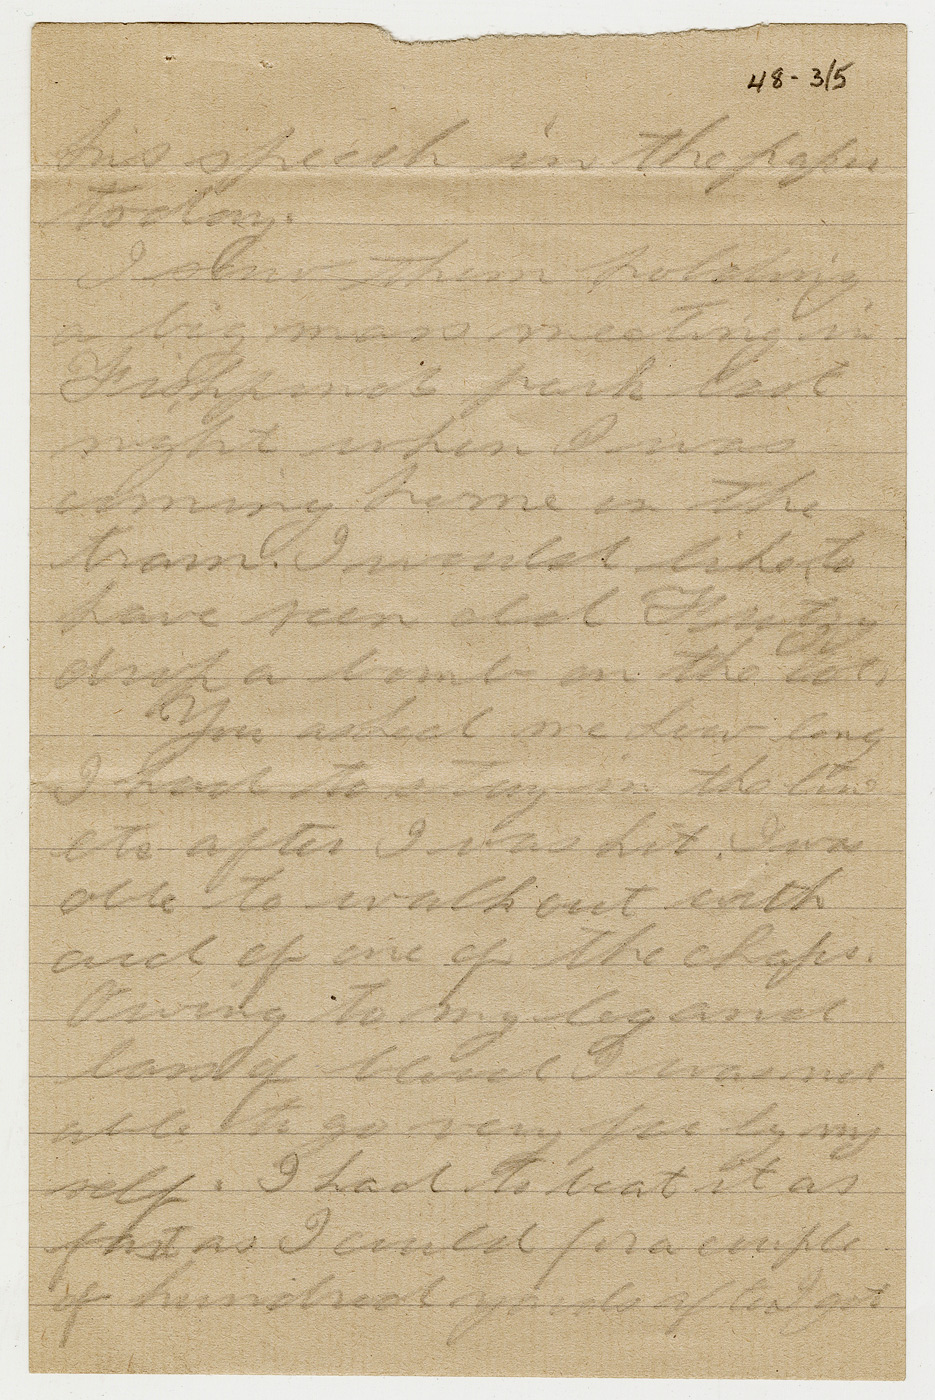 48-3/5
his speech in the paper
today.
I saw them holding
a big mass meeting in
park last
night when I was
coming home in the
tram. I would like to
have seen old
drop a bomb on the lot
You asked me how long
I had to stay in the
etc after I was hit. I was
able to walk out with
aid of one of the chaps.
Owing to my leg and
loss of blood I was not
able to go very far by my
self. I had to beat it as
fast as I could for a couple
of hundred yards after I got